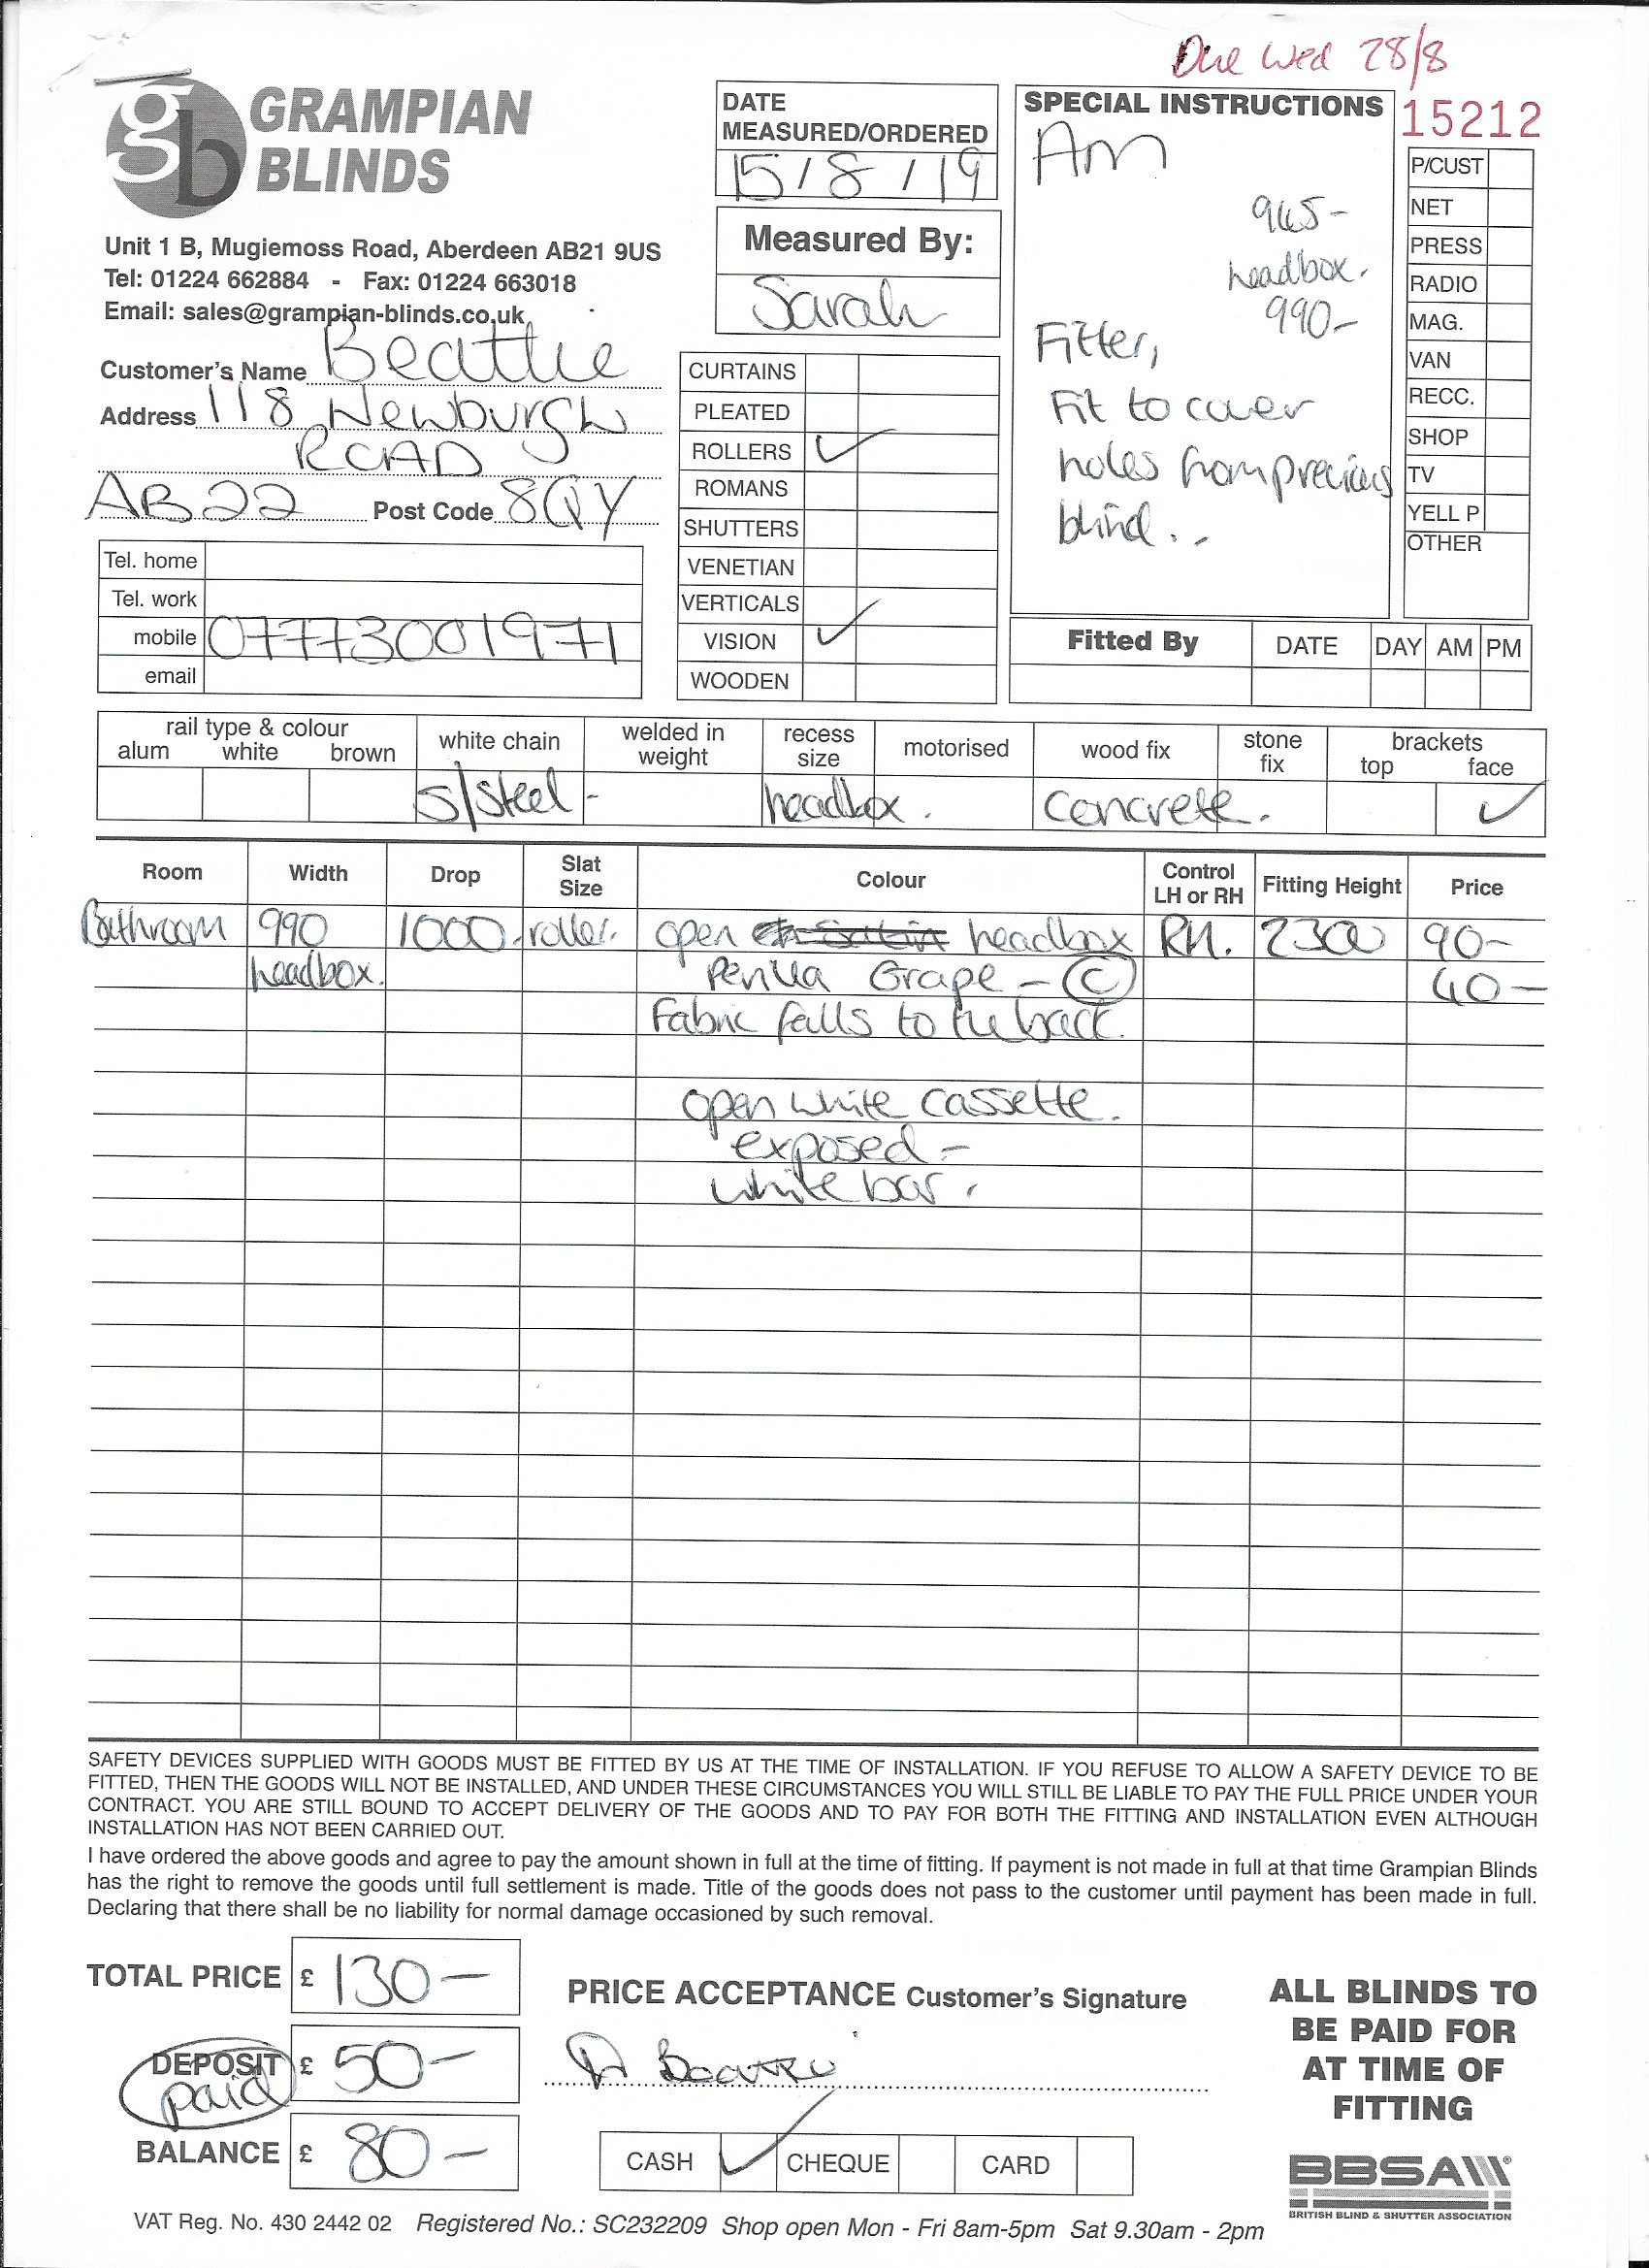 Due Wed 28/8
GRAMPIAN
BLINDS
gb
Unit 1 B, Mugiemoss Road, Aberdeen AB21 9US
Tel: 01224 662884 - Fax: 01224 663018
Email: sales@grampian-blinds.co.uk
DATE
MEASURED/ORDERED
15/8/19
Measured By:
Sarah
SPECIAL INSTRUCTIONS
Am
965-
headbox.
990-
Fitter,
Fit to cover
holes from previous
blind..
15212
P/CUST
NET
PRESS
RADIO
MAG.
VAN
RECC.
SHOP
TV
YELL P
OTHER
Customer's Name Beattie
Address 118 Newburgh
ROAD
AB22 Post Code 8QY
Tel. home
Tel. work
mobile 07773001971
email
CURTAINS
PLEATED
ROLLERS ✓
ROMANS
SHUTTERS
VENETIAN
VERTICALS
VISION ✓
WOODEN
Fitted By DATE DAY AM PM
rail type & colour
alum white brown
white chain
welded in
weight
recess
size
motorised
wood fix
stone
fix
brackets
top face
S/Steel - headbox. concrete. ✓
Room Width Drop Slat Size Colour Control LH or RH Fitting Height Price
Bathroom 990 1000 roller. open headbox RH. 2300 90-
headbox. Perilla Grape - C 40-
Fabric falls to the back.
open white cassette.
exposed -
white bar.
SAFETY DEVICES SUPPLIED WITH GOODS MUST BE FITTED BY US AT THE TIME OF INSTALLATION. IF YOU REFUSE TO ALLOW A SAFETY DEVICE TO BE
FITTED, THEN THE GOODS WILL NOT BE INSTALLED, AND UNDER THESE CIRCUMSTANCES YOU WILL STILL BE LIABLE TO PAY THE FULL PRICE UNDER YOUR
CONTRACT. YOU ARE STILL BOUND TO ACCEPT DELIVERY OF THE GOODS AND TO PAY FOR BOTH THE FITTING AND INSTALLATION EVEN ALTHOUGH
INSTALLATION HAS NOT BEEN CARRIED OUT.
I have ordered the above goods and agree to pay the amount shown in full at the time of fitting. If payment is not made in full at that time Grampian Blinds
has the right to remove the goods until full settlement is made. Title of the goods does not pass to the customer until payment has been made in full.
Declaring that there shall be no liability for normal damage occasioned by such removal.
TOTAL PRICE £ 130-
DEPOSIT £ 50-
paid
BALANCE £ 80-
PRICE ACCEPTANCE Customer's Signature
Beattie
CASH ✓ CHEQUE CARD
ALL BLINDS TO
BE PAID FOR
AT TIME OF
FITTING
BBSA
BRITISH BLIND & SHUTTER ASSOCIATION
VAT Reg. No. 430 2442 02 Registered No.: SC232209 Shop open Mon - Fri 8am-5pm Sat 9.30am - 2pm